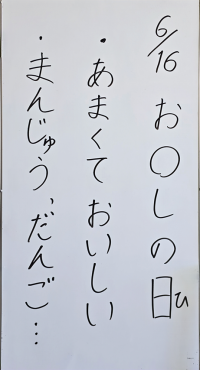 6/16 お〇しの日ひ
・あまくておいしい
・まんじゅう、だんご…